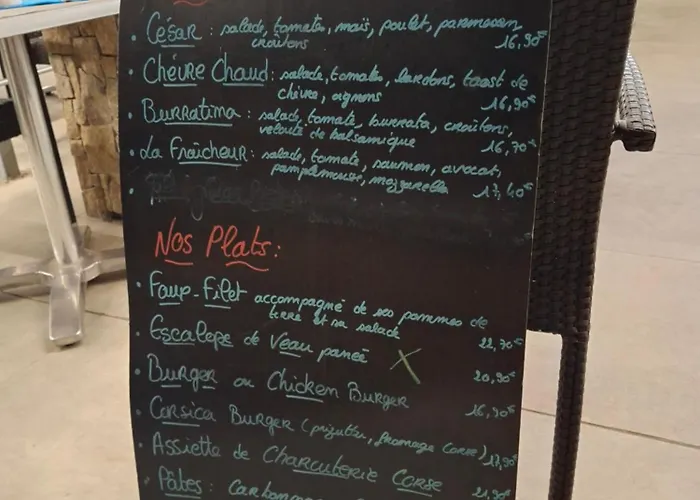 • César : salade, tomates, maïs, poulet, parmesan,
croûtons 16,90€
• Chèvre Chaud : salade, tomates, lardons, toast de
chèvre, oignons 16,90€
• Burratina : salade, tomate, burrata, croûtons,
velouté de balsamique 16,70€
• La Fraîcheur : salade, tomate, saumon, avocat,
pamplemousse, mozzarella 17,40€
Nos Plats :
• Faux-Filet accompagné de ses pommes de
terre et sa salade 22,70€
• Escalope de Veau panée X 20,90€
• Burger ou Chicken Burger 16,90€
• Corsica Burger (prizuttu, fromage Corse) 17,90€
• Assiette de Charcuterie Corse 21,90€
• Pâtes :